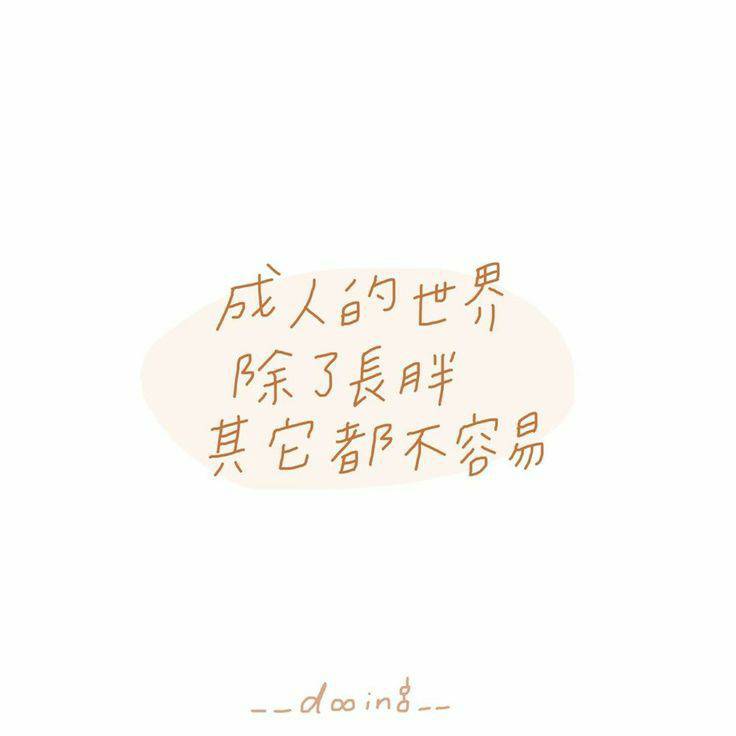 成人的世界
除了長胖
其它都不容易
__dooing__